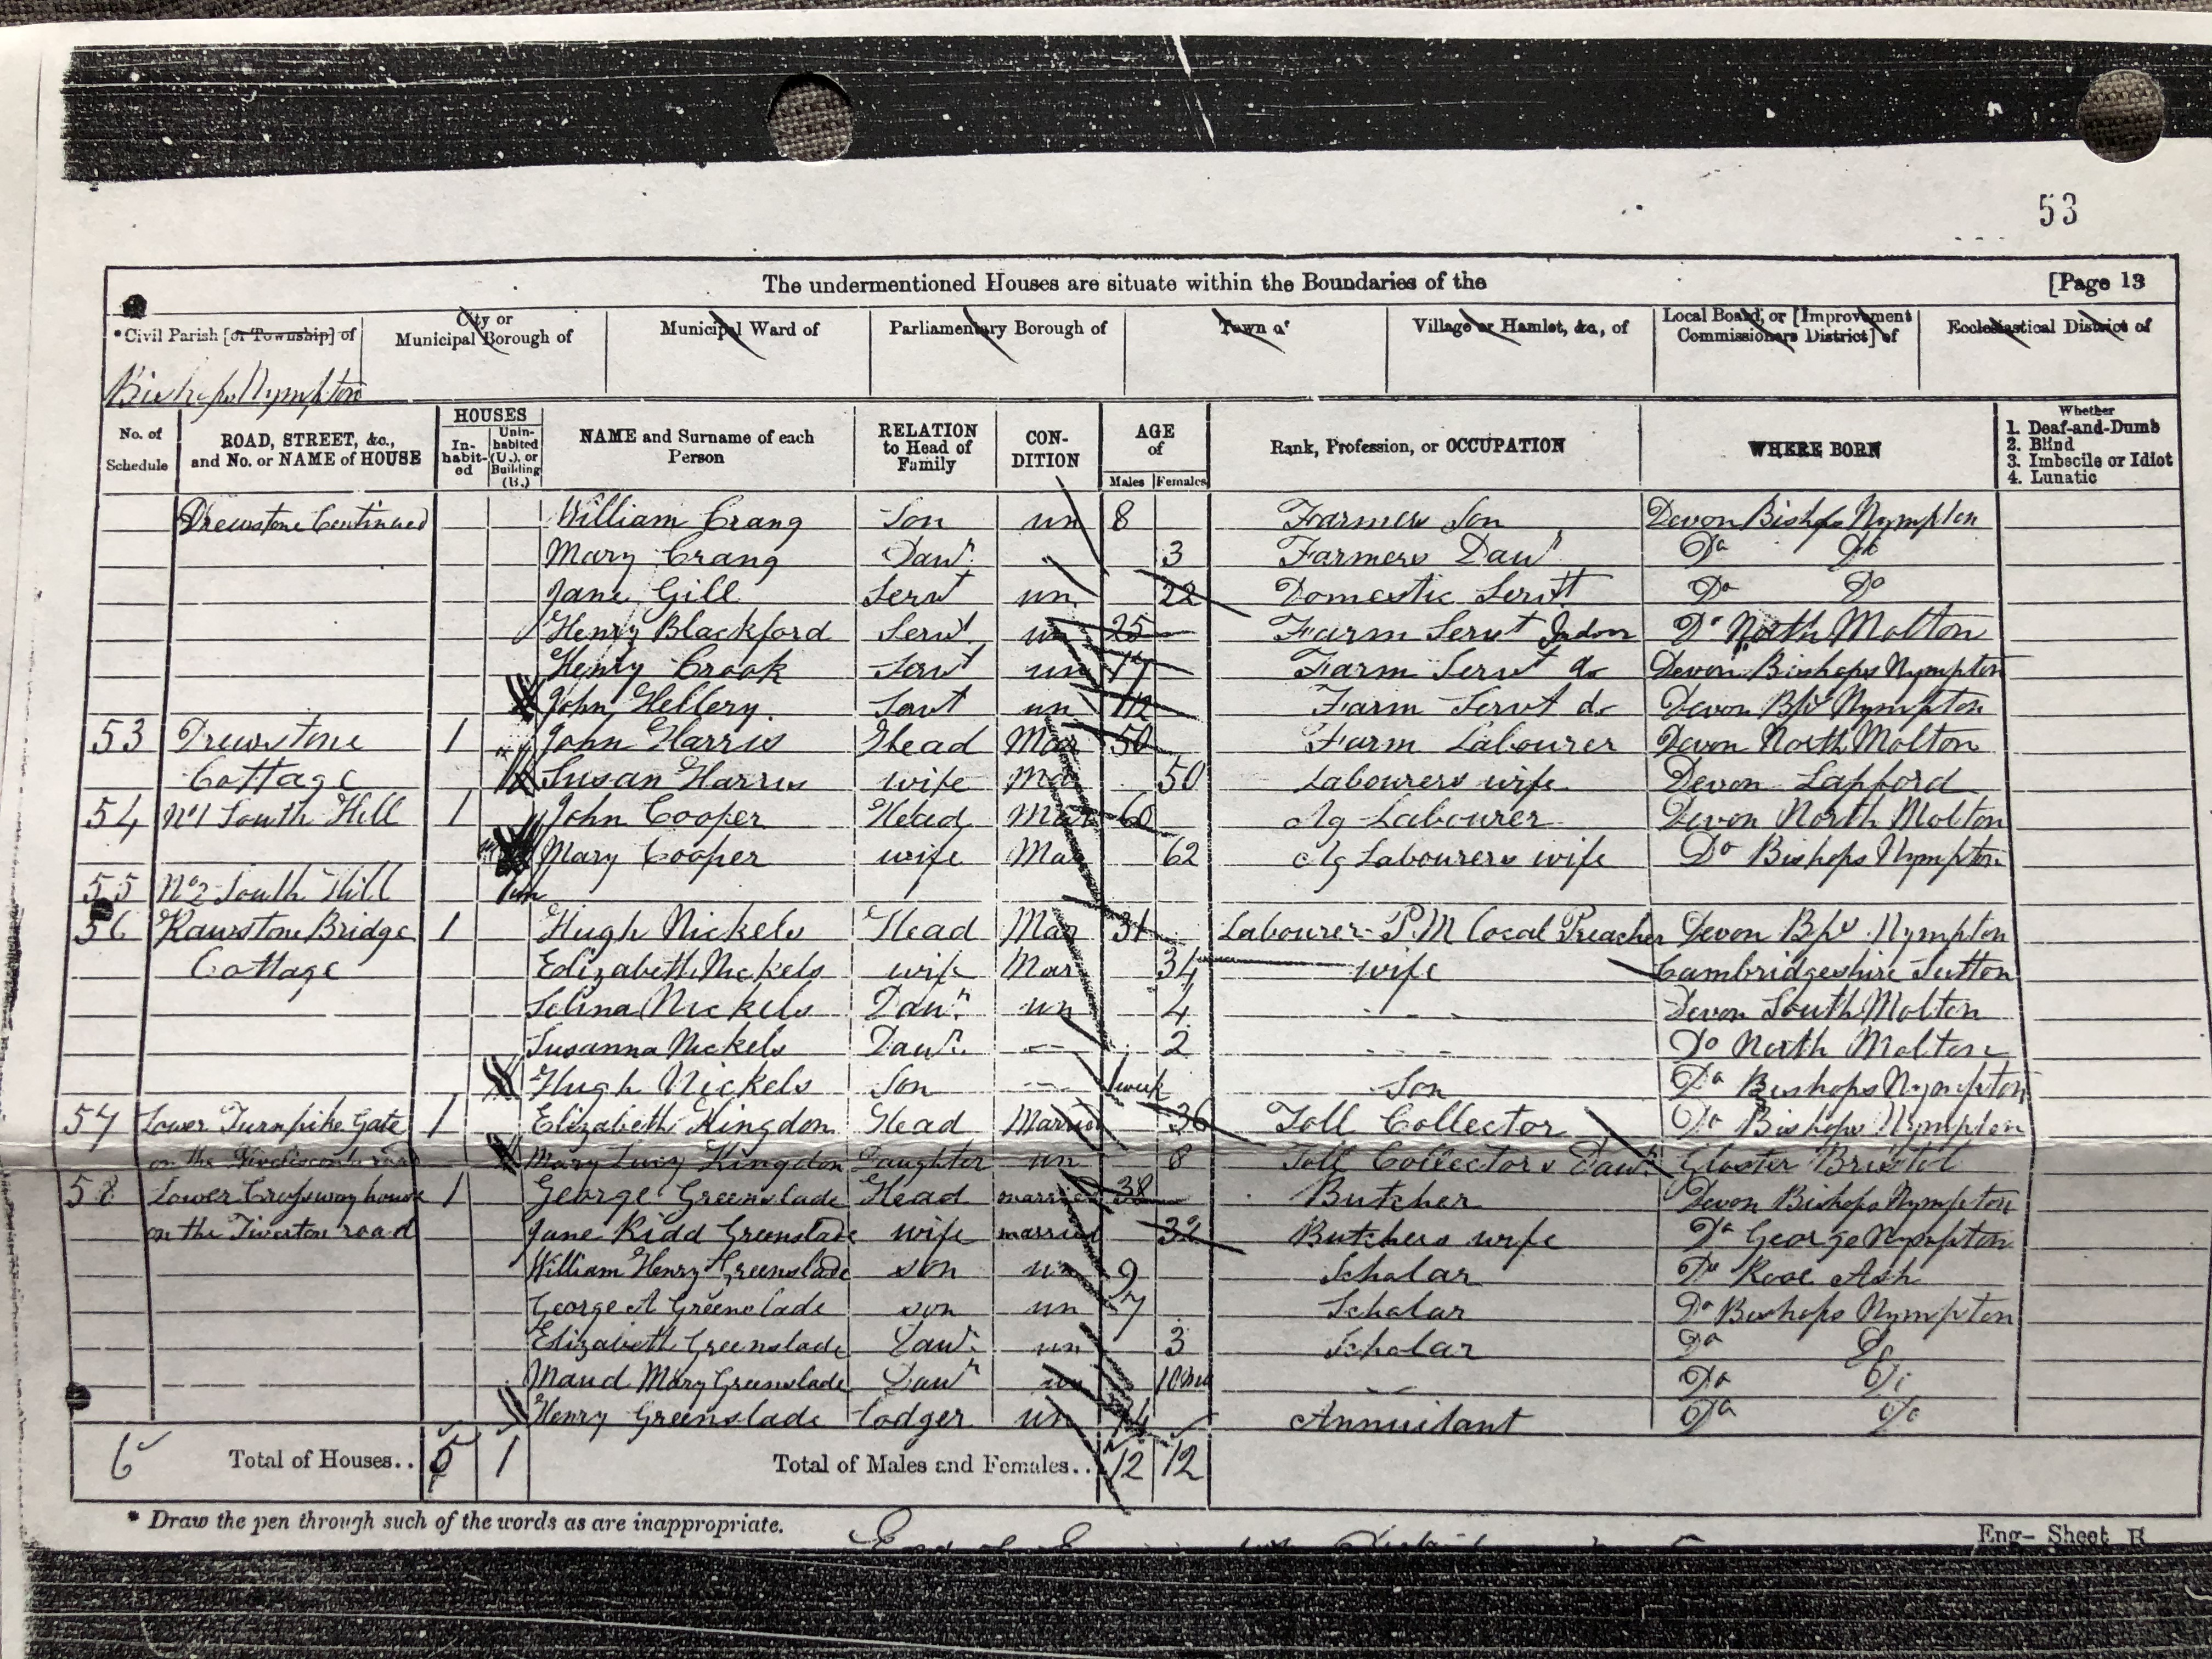 53
The undermentioned Houses are situate within the Boundaries of the [Page 13
*Civil Parish [or Township] of
City or Municipal Borough of
Municipal Ward of
Parliamentary Borough of
Town of
Village or Hamlet, &c., of
Local Board, or [Improvement Commissioners District] of
Ecclesiastical District of
Bishops Nympton
No. of Schedule
ROAD, STREET, &c., and No. or NAME of HOUSE
HOUSES
In-habit-ed
Unin-habited (U.), or Building (B.)
NAME and Surname of each Person
RELATION to Head of Family
CON-DITION
AGE of
Males Females
Rank, Profession, or OCCUPATION
WHERE BORN
Whether
1. Deaf-and-Dumb
2. Blind
3. Imbecile or Idiot
4. Lunatic
Drewstone Continued William Crang Son un 8 Farmers Son Devon Bishops Nympton
Mary Crang Dawr. 3 Farmers Dawr Do Do
Jane Gill Servt un 22 Domestic Servt Do Do
Henry Blackford Servt un 25 Farm Servt Indoor Do North Molton
Henry Crook Servt un 17 Farm Servt do Devon Bishops Nympton
John Hellery Servt un Farm Servt do Devon Bps Nympton
53 Drewstone 1 John Harris Head Mar 50 Farm Labourer Devon North Molton
Cottage Susan Harris wife Mar 50 Labourers wife Devon Lapford
54 No 1 South Hill 1 John Cooper Head Mar 60 Ag Labourer Devon North Molton
Mary Cooper wife Mar 62 Ag Labourers wife Do Bishops Nympton
55 No 2 South Hill
56 Rawstone Bridge 1 Hugh Nickels Head Mar 31 Labourer P.M Local Preacher Devon Bps Nympton
Cottage Elizabeth Nickels wife Mar 34 wife Cambridgeshire Sutton
Selina Nickels Dawr. un 4 Devon South Molton
Susanna Nickels Dawr. 2 Do North Molton
Hugh Nickels Son 1 week Son Do Bishops Nympton
57 Lower Turnpike Gate 1 Elizabeth Kingdon Head Married 36 Toll Collector Do Bishops Nympton
on the road Mary Lucy Kingdon Daughter un 8 Toll Collectors Dawr. Gloster Bristol
58 Lower Crossway house 1 George Greenslade Head married 38 Butcher Devon Bishops Nympton
on the Tiverton road Jane Kidd Greenslade wife married 32 Butchers wife Do George Nympton
William Henry Greenslade son un 9 Scholar Do Rose Ash
George A Greenslade son un 7 Scholar Do Bishops Nympton
Elizabeth Greenslade Dawr. un 3 Scholar Do Do
Maud Mary Greenslade Dawr un 10 Do Do
Henry Greenslade lodger un 74 Annuitant Do do
6 Total of Houses.. 5 1 Total of Males and Females.. 12 12
* Draw the pen through such of the words as are inappropriate.
Eng- Sheet B